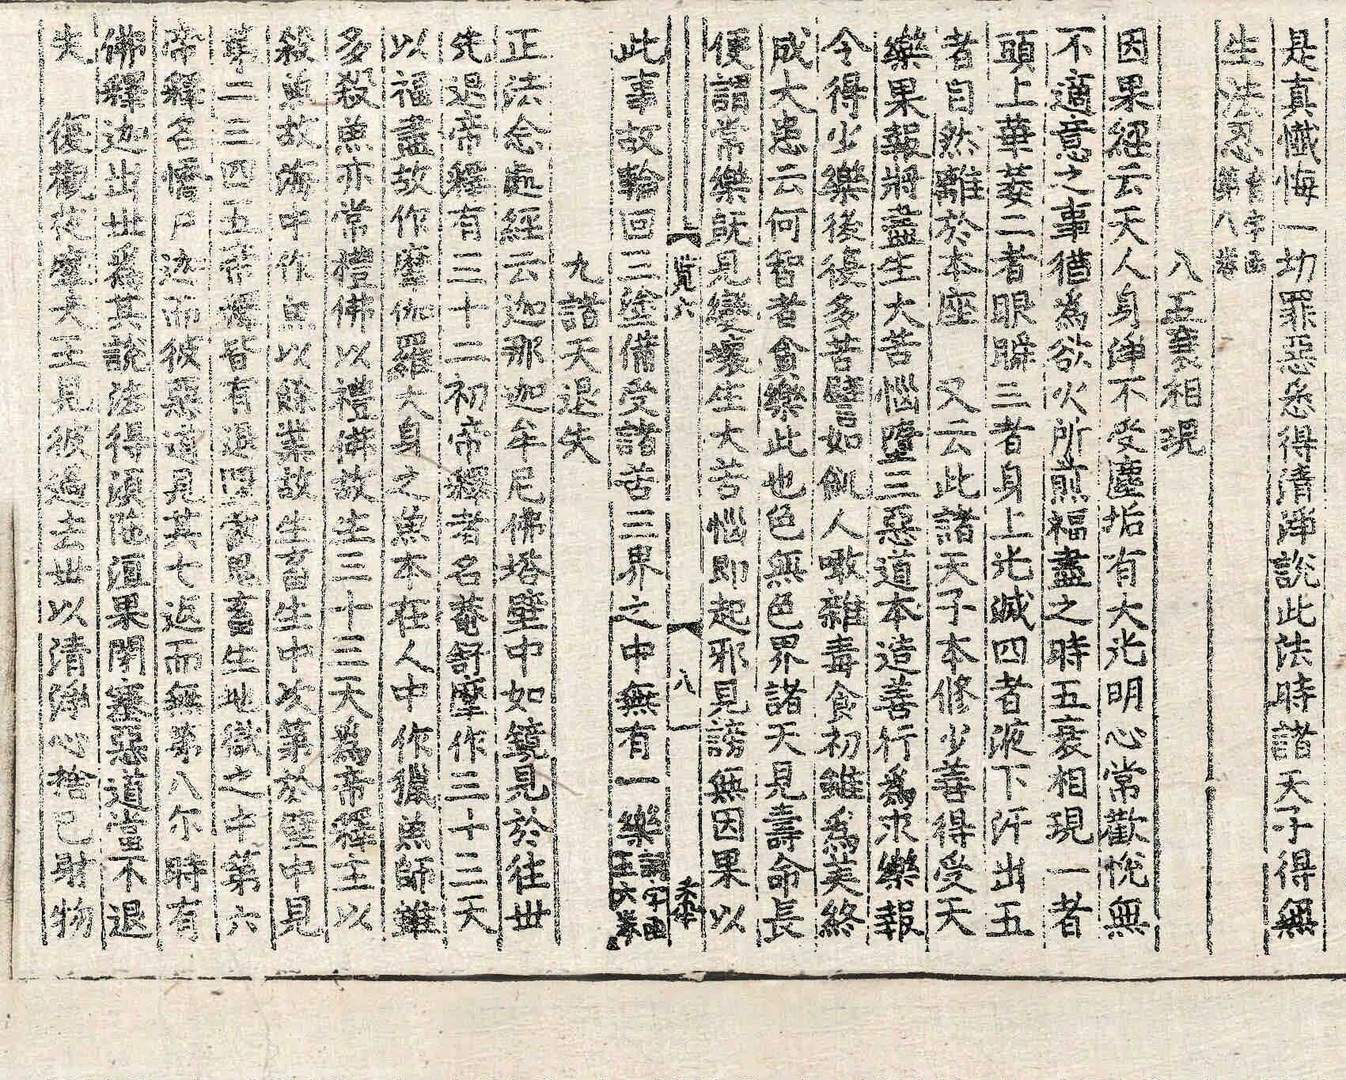 是真懺悔一切罪惡悉得清淨說此法時諸天子得無
生法忍
八五衰相現
因果經云天人身淨不受塵垢有大光明心常歡悅無
不適意之事猶為欲火所煎福盡之時五衰相現一者
頭上華萎二者眼瞬三者身上光滅四者液下汗出五
者自然離於本座 又云此諸天子本修少善得受天
樂果報將盡生大苦惱墮三惡道本造善行為求樂報
今得少樂後復多苦譬如飢人噉雜毒食初雖為美終
成大患云何智者貪樂此也色無色界諸天見壽命長
便謂常樂既見變壞生大苦惱即起邪見謗無因果以
覽六 八
此事故輪回三塗備受諸苦三界之中無有一樂
九諸天退失
正法念處經云迦那迦牟尼佛塔壁中如鏡見於往世
先退帝釋有三十二初帝釋者名菴舒摩作三十三天
以福盡故作摩伽羅大身之魚本在人中作獵魚師雖
多殺魚亦常禮佛以禮佛故生三十三天為帝釋主以
殺魚故海中作魚以餘業故生畜生中次第於壁中見
第二三四五帝釋皆有退因畜生地獄之中第六
帝釋名憍尸迦而彼惡道見其七返而無第八尔時有
佛釋迦出世為其說法得須陁洹果閉塞惡道當不退
失 復觀拖摩天王見彼過去世以清淨心捨己財物